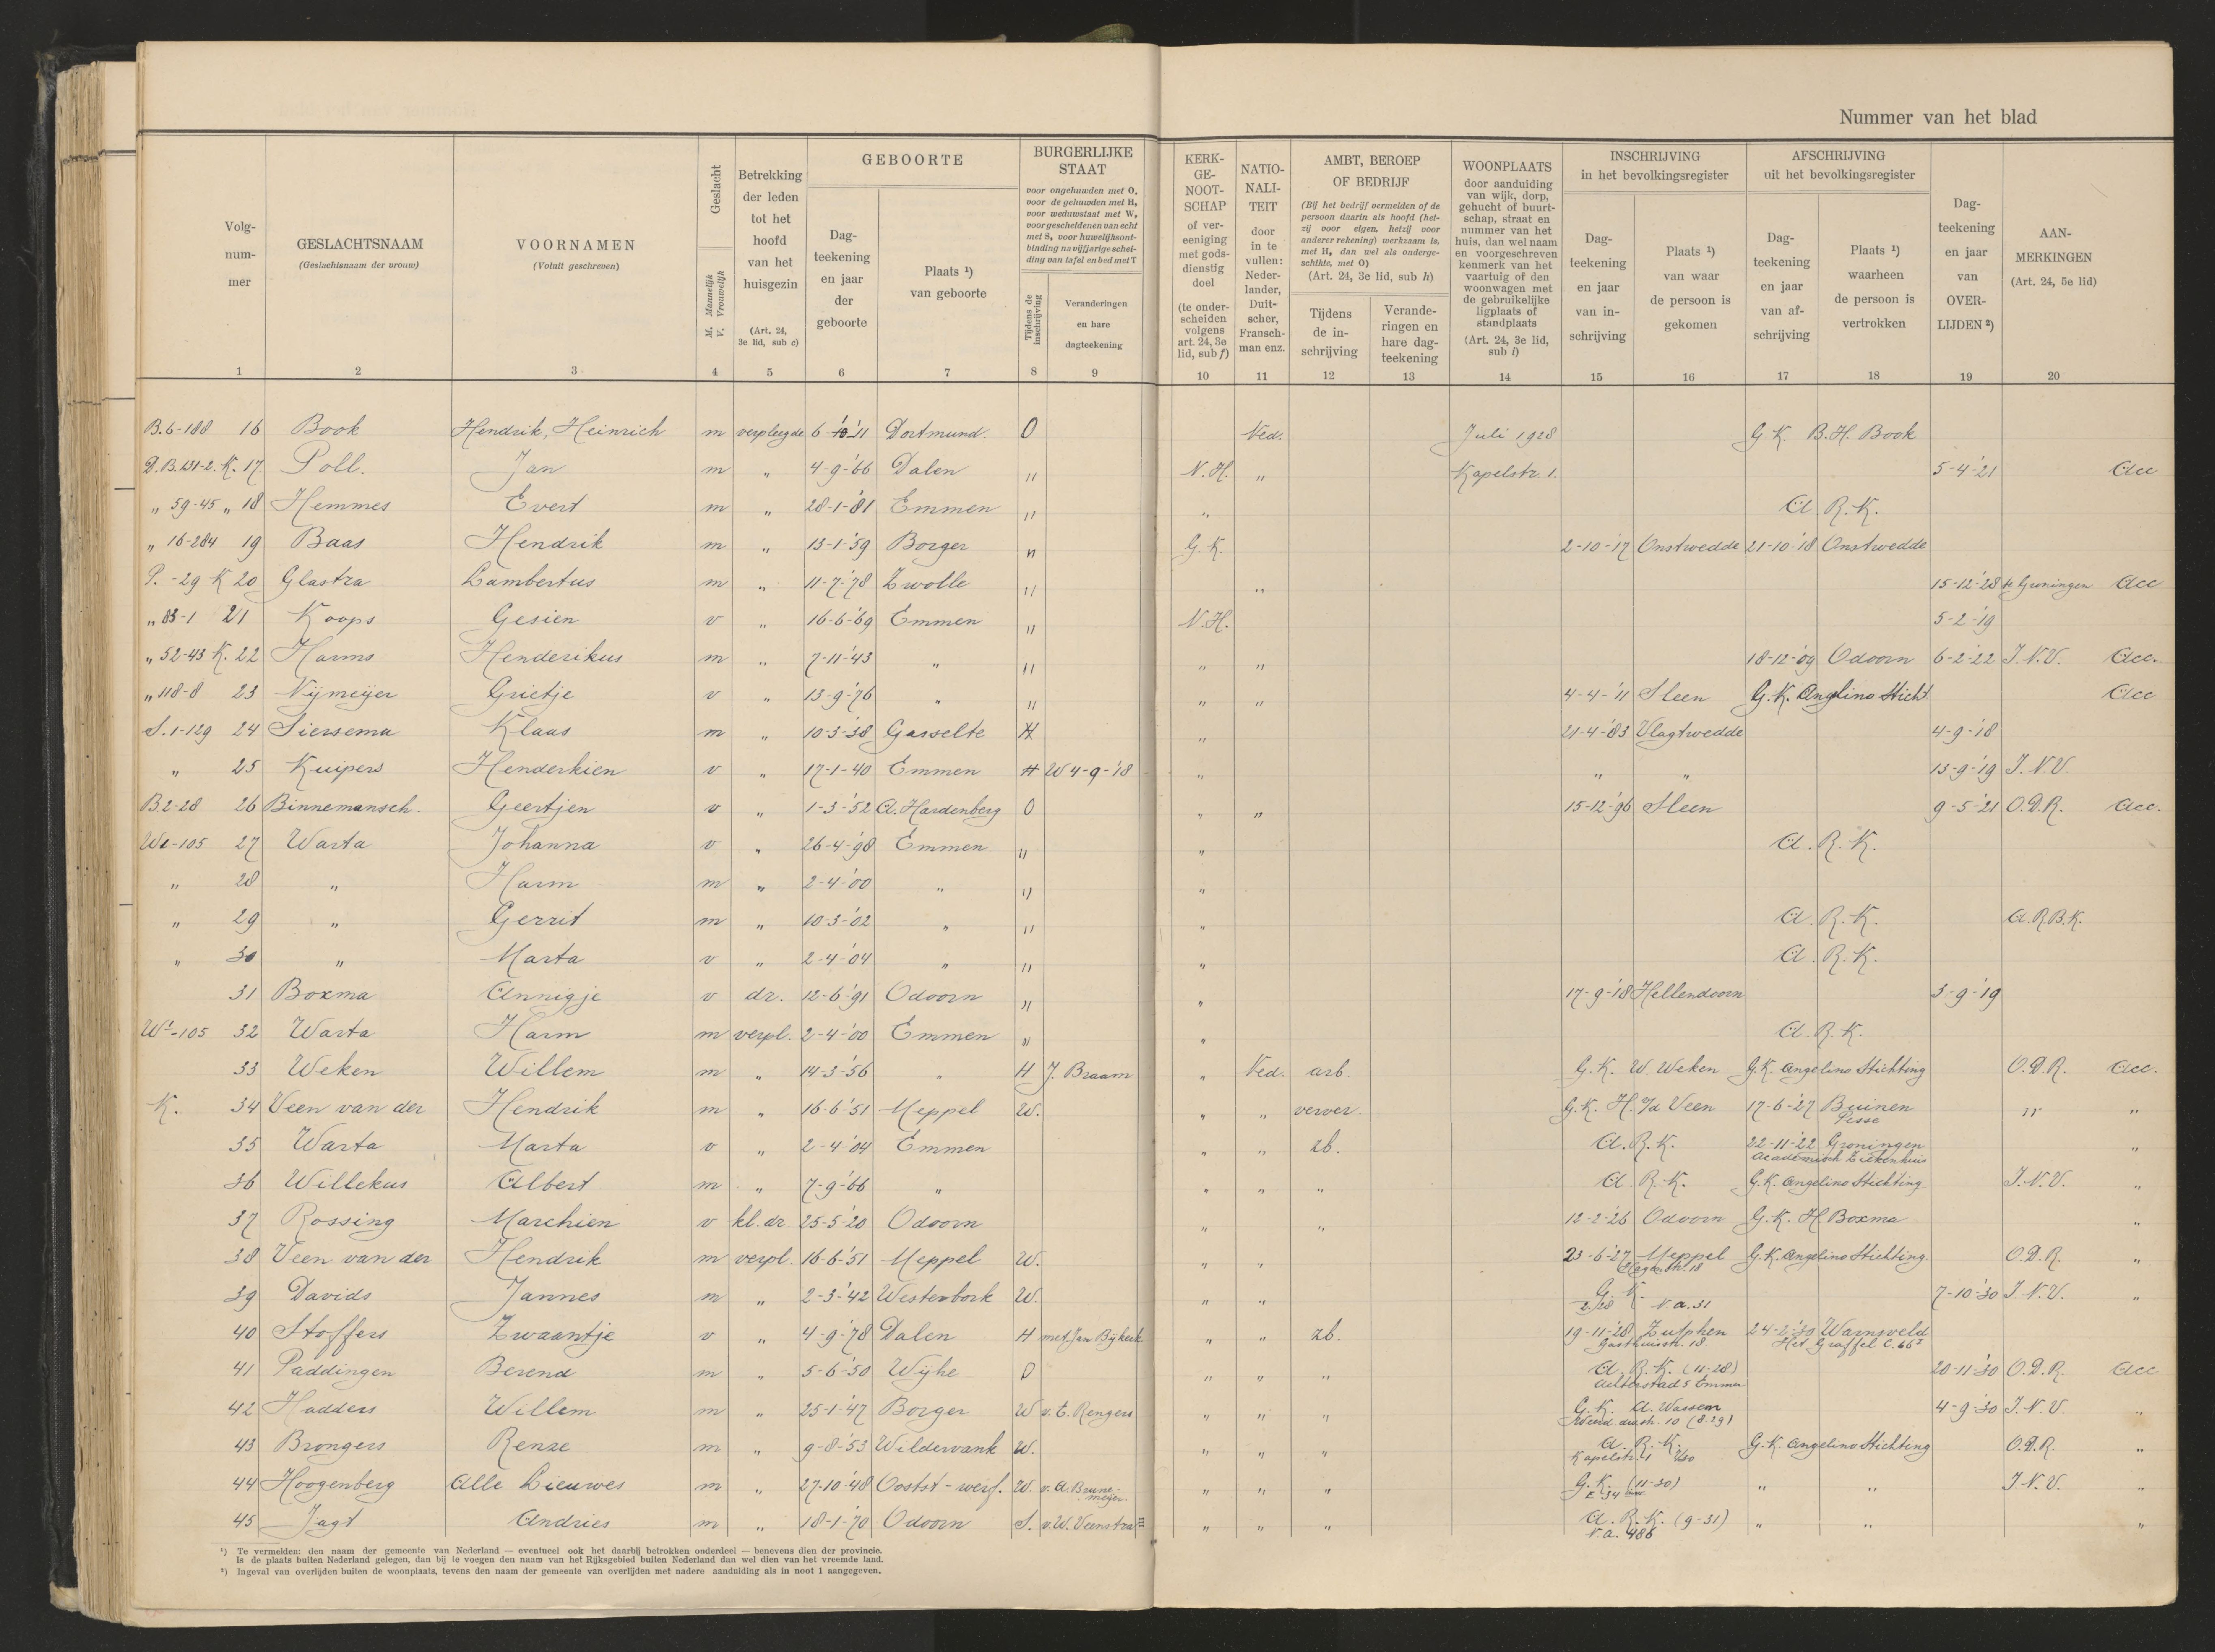 Nummer van het blad
Volg-
num-
mer
GESLACHTSNAAM
(Geslachtsnaam der vrouw)
VOORNAMEN
(Voluit geschreven)
Geslacht
M. Mannelijk
V. Vrouwelijk
Betrekking
der leden
tot het
hoofd
van het
huisgezin
(Art. 24,
3e lid, sub c)
GEBOORTE
Dag-
teekening
en jaar
der
geboorte
Plaats ¹)
van geboorte
BURGERLIJKE
STAAT
voor ongehuwden met O,
voor de gehuwden met H,
voor weduwstaat met W,
voor gescheidenen van echt
met S, voor huwelijksont-
binding na vijfjarige schei-
ding van tafel en bed met T
Tijdens de
inschrijving
Veranderingen
en hare
dagteekening
KERK-
GE-
NOOT-
SCHAP
of ver-
eeniging
met gods-
dienstig
doel
(te onder-
scheiden
volgens
art. 24, 3e
lid, sub f)
NATIO-
NALI-
TEIT
door
in te
vullen:
Neder-
lander,
Duit-
scher,
Fransch-
man enz.
AMBT, BEROEP
OF BEDRIJF
(Bij het bedrijf vermelden of de
persoon daarin als hoofd (het-
zij voor eigen, hetzij voor
anderer rekening) werkzaam is,
met H, dan wel als onderge-
schikte, met O)
(Art. 24, 3e lid, sub h)
Tijdens
de in-
schrijving
Verande-
ringen en
hare dag-
teekening
WOONPLAATS
door aanduiding
van wijk, dorp,
gehucht of buurt-
schap, straat en
nummer van het
huis, dan wel naam
en voorgeschreven
kenmerk van het
vaartuig of den
woonwagen met
de gebruikelijke
ligplaats of
standplaats
(Art. 24, 3e lid,
sub i)
INSCHRIJVING
in het bevolkingsregister
Dag-
teekening
en jaar
van in-
schrijving
Plaats ¹)
van waar
de persoon is
gekomen
AFSCHRIJVING
uit het bevolkingsregister
Dag-
teekening
en jaar
van af-
schrijving
Plaats ¹)
waarheen
de persoon is
vertrokken
Dag-
teekening
en jaar
van
OVER-
LIJDEN ²)
AAN-
MERKINGEN
(Art. 24, 5e lid)
1 2 3 4 5 6 7 8 9 10 11 12 13 14 15 16 17 18 19 20
B.6-188 16 Book Hendrik, Heinrich m verpleegde 6-10-'11 Dortmund. O Ned. Juli 1928 G.K. B.H. Book
D.B.131-2. K. 17 Poll. Jan m " 4-9-'66 Dalen " N.H. " Kapelstr. 1. 5-4-'21 Acc
" 59-45 " 18 Hemmes Evert m " 28-1-'81 Emmen " " A.R.K.
" 16-284 19 Baas Hendrik m " 13-1-'59 Borger " G.K. 2-10-'17 Onstwedde 21-10-'18 Onstwedde
P.-29 K 20 Glastra Lambertus m " 11-7-'78 Zwolle " " 15-12-'28 te Groningen Acc
" 83-1 21 Koops Gesien v " 16-6-'69 Emmen " N.H. 5-2-'19
" 52-43 K. 22 Harms Henderikus m " 7-11-'43 " " " " 18-12-'09 Odoorn 6-2-'22 I.N.V. Acc.
" 118-8 23 Nijmeijer Grietje v " 13-9-'76 " " " " 4-4-'11 Sleen G.K. Angelino Sticht. Acc
S.1-129 24 Siersema Klaas m " 10-3-'38 Gasselte H " 21-4-'83 Vlagtwedde 4-9-'18
" 25 Kuipers Henderkien v " 17-1-'40 Emmen H W 4-9-'18 " " " 13-9-'19 I.N.V.
B2-28 26 Binnemansch. Geertjen v " 1-3-'52 A. Hardenberg O " " 15-12-'96 Sleen 9-5-'21 O.D.R. Acc.
W1-105 27 Warta Johanna v " 26-4-'98 Emmen " " A.R.K.
" 28 " Harm m " 2-4-'00 " " "
" 29 " Gerrit m " 10-3-'02 " " " A.R.K. A.R.B.K.
" 30 " Marta v " 2-4-'04 " " " A.R.K.
31 Boxma Annigje v dr. 12-6-'91 Odoorn " " 17-9-'18 Hellendoorn 3-9-'19
W1-105 32 Warta Harm m verpl. 2-4-'00 Emmen " " A.R.K.
33 Weken Willem m " 14-3-'56 " H J. Braam " Ned. arb. G.K. W. Weken G.K. Angelino Stichting O.D.R. Acc.
K. 34 Veen van der Hendrik m " 16-6-'51 Meppel W. " " verver. G.K. H. v/d Veen 17-6-'27 Buinen " "
Pesse
35 Warta Marta v " 2-4-'04 Emmen " " zb. A.R.K. 22-11-'22 Groningen "
Academisch Ziekenhuis
36 Willekus Albert m " 7-9-'66 " " " " A.R.K. G.K. Angelino Stichting I.N.V. "
37 Rossing Marchien v kl. dr. 25-5-'20 Odoorn " " 12-2-'26 Odoorn G.K. H. Boxma "
38 Veen van der Hendrik m verpl. 16-6-'51 Meppel W. " " 23-6-'27 Meppel G.K. Angelino Stichting. O.D.R. "
39 Davids Jannes m " 2-3-'42 Westerbork W. " " G.K. 7-10-'30 I.N.V. "
2/28 N.a. 31
40 Stoffers Zwaantje v " 4-9-'78 Dalen H met Jan Bijkerk " " zb. 19-11-'28 Zutphen 24-2-'30 Warnsveld
Gasthuisstr. 18. Het Graffel C. 66²
41 Paddingen Berend m " 5-6-'50 Wijhe O " " " A.R.K. (11-28) 20-11-'30 O.D.R. Acc
Emmen
42 Hadders Willem m " 25-1-'47 Borger W v. E. Rengers " " " G.K. A. Wassem 4-9-'30 I.N.V. "
10 (8-29)
43 Brongers Renze m " 9-8-'53 Wildervank W. " " " A.R.K. G.K. Angelino Stichting O.D.R. "
Kapelstr. 1
44 Hoogenberg Alle Lieuwes m " 27-10-'48 Oostst-werf. W. v. A. Brune- " " " G.K. (11-30) " " I.N.V. "
meijer. E 34
45 Jagt Andries m " 18-1-'70 Odoorn S. v. W. Veenstra " " " A.R.K. (9-31) " " "
N.a. 486
¹) Te vermelden: den naam der gemeente van Nederland — eventueel ook het daarbij betrokken onderdeel — benevens dien der provincie.
Is de plaats buiten Nederland gelegen, dan bij te voegen den naam van het Rijksgebied buiten Nederland dan wel dien van het vreemde land.
²) Ingeval van overlijden buiten de woonplaats, tevens den naam der gemeente van overlijden met nadere aanduiding als in noot 1 aangegeven.